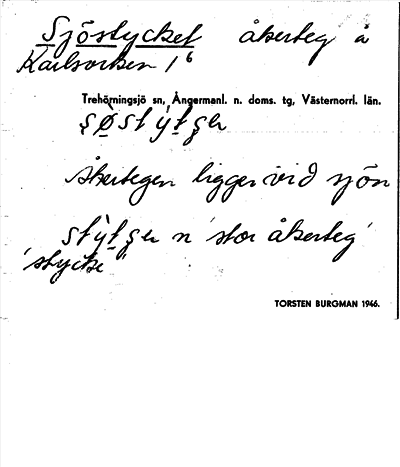 Sjöstycket åkerteg å
Karlsviken 1⁶
Trehörningsjö sn, Ångermanl. n. doms. tg, Västernorrl. län.
Åkertegen ligger vid sjön
n 'stor åkerteg'
'stycke'
TORSTEN BURGMAN 1946.